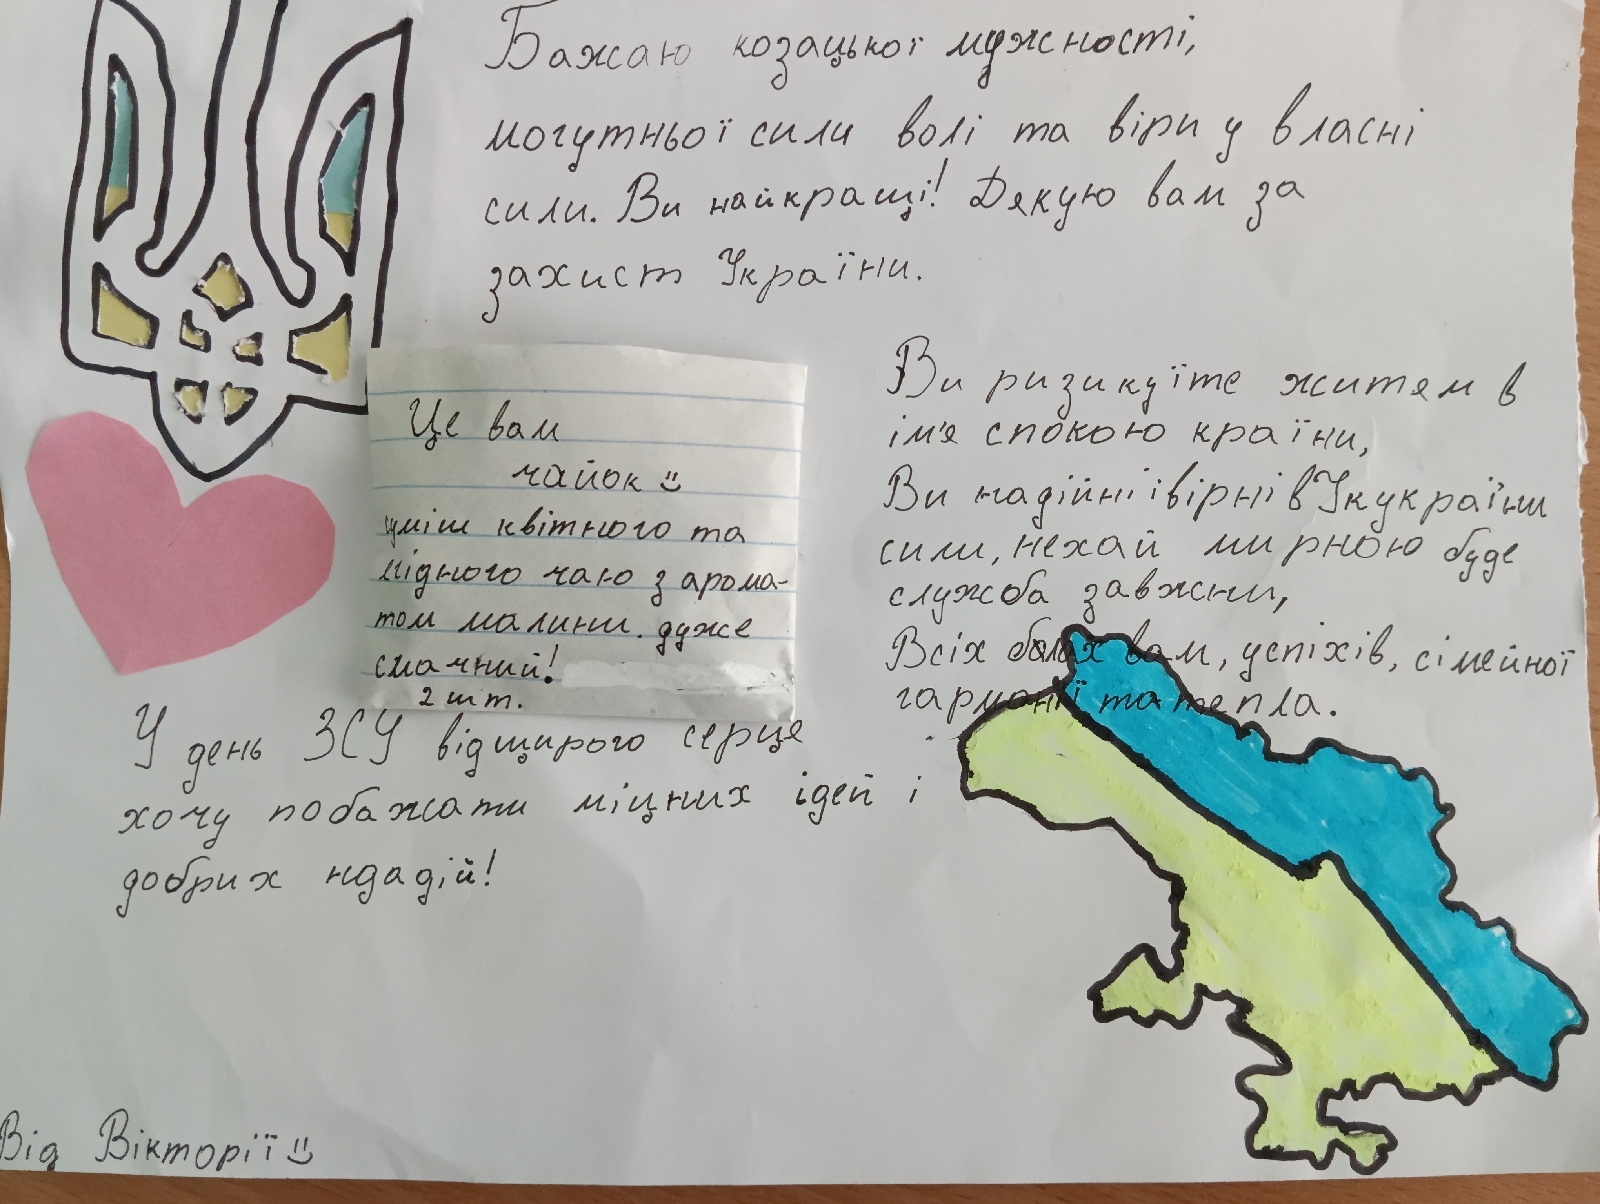 Бажаю козацької мужності,
могутньої сили волі та віри у власні
сили. Ви найкращі! Дякую вам за
захист України.
Ви ризикуїте житям в
ім'я спокою країни,
Ви надійні і вірні в Укукраїни
сили, нехай мирною буде
служба завжни,
Всіх благ вам, успіхів, сімейної
гармонії та тепла.
Це вам
чайок
суміш квітного та
мідного чаю з арома-
том малини. дуже
смачний!
2 шт.
У день ЗСУ відщирого серце
хочу побажати міцних ідей і
добрих ндадій!
Від Вікторії